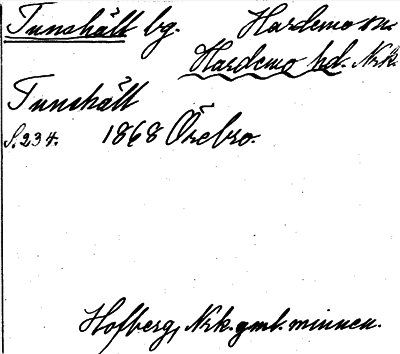 Tunshäll bg. Hardemo sn.
Hardemo hd. Nrk.
Tunshäll
S. 234. 1868 Örebro.
Hofberg, Nrk. gml. minnen.